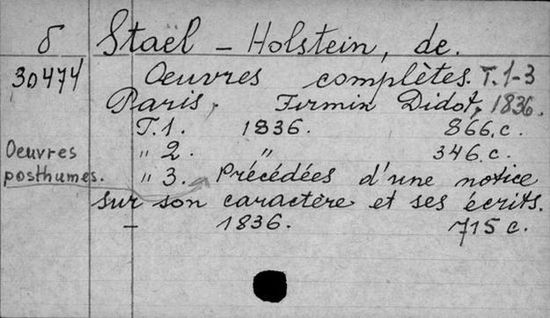 б Staël - Holstein, de.
30474 Oeuvres complètes. T. 1-3
Paris, Firmin Didot, 1836.
T. 1. 1836. 866. c.
Oeuvres „ 2. „ 346. c.
posthumes. „ 3. Précédées d'une notice
sur son caractère et ses écrits.
– 1836. 715 c.